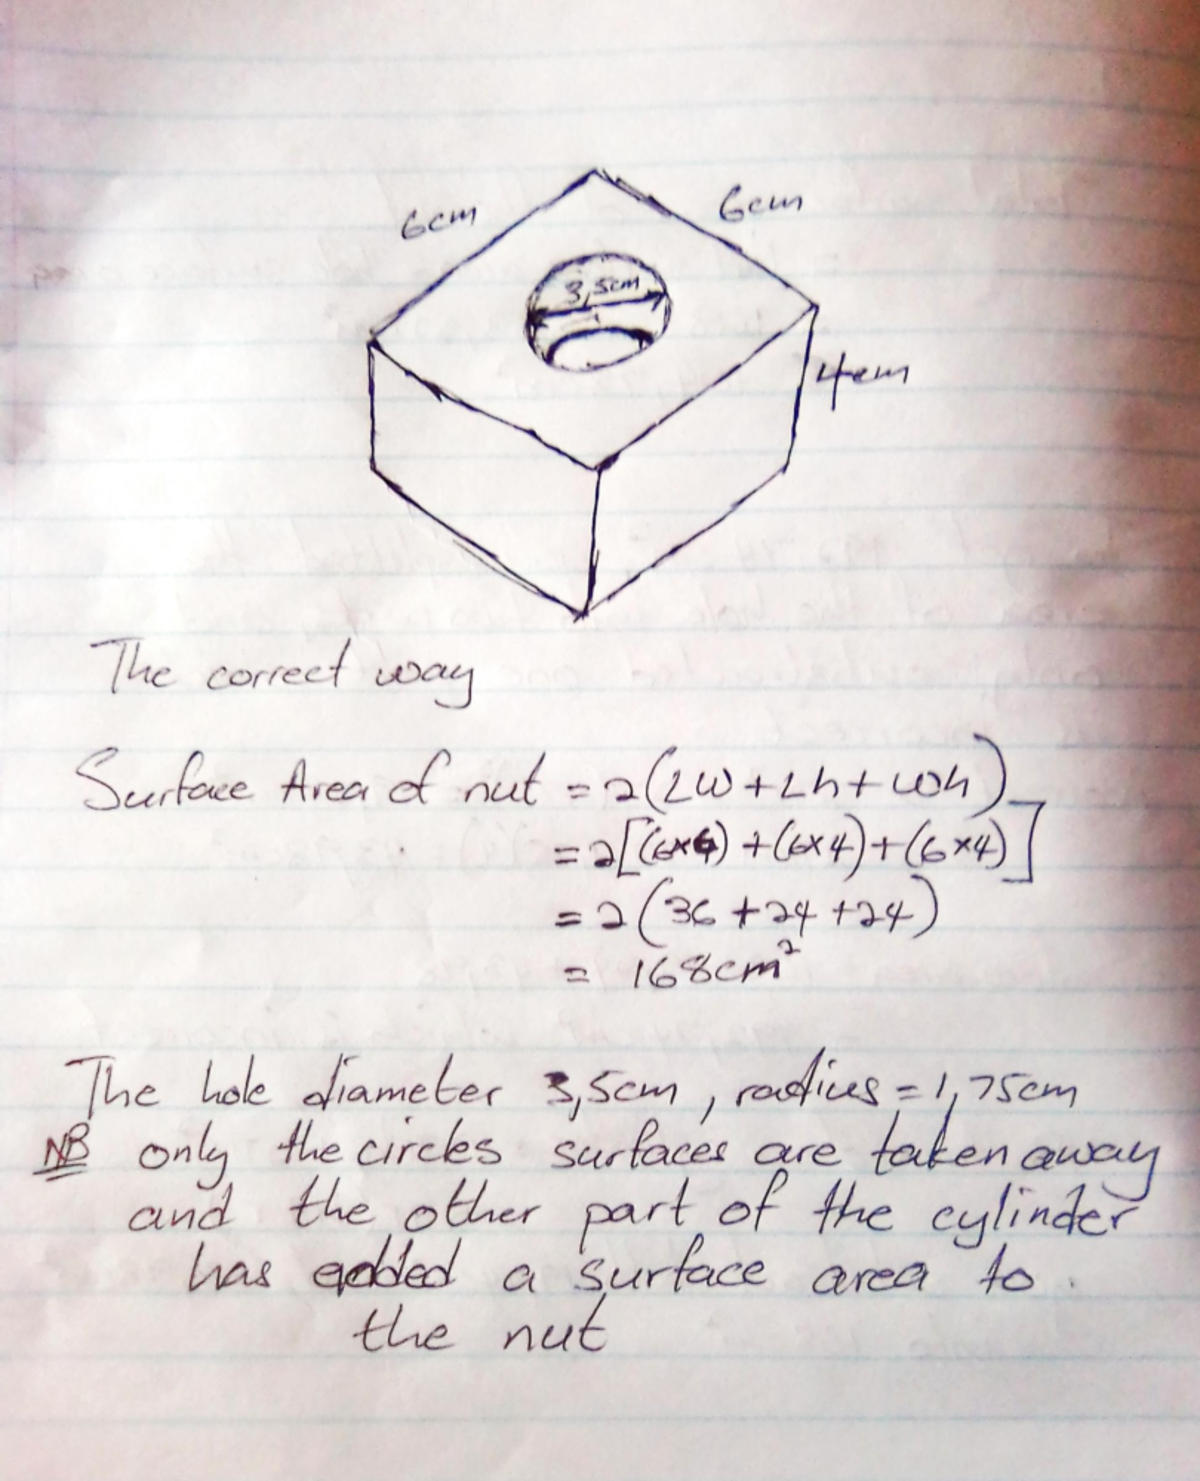 6cm
6cm
3,5cm
4cm
The correct way
Surface Area of nut = 2(LW+Lh+Wh)
= 2[(6×6)+(6×4)+(6×4)]
= 2(36+24+24)
= 168cm²
The hole diameter 3,5cm, radius = 1,75cm
NB only the circles surfaces are taken away
and the other part of the cylinder
has added a surface area to
the nut